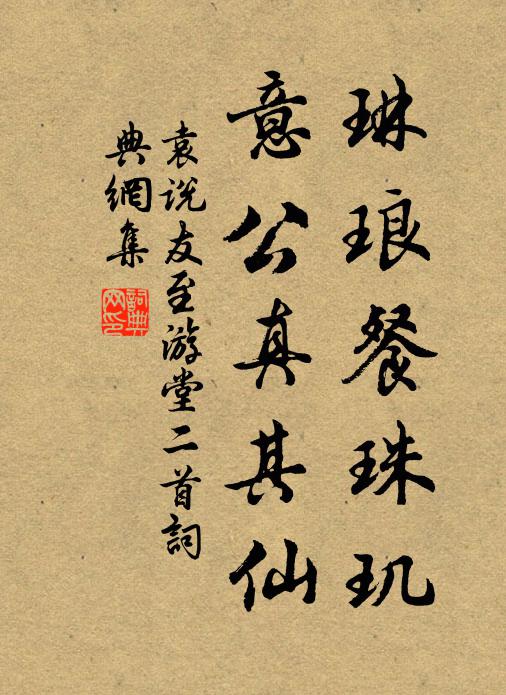 琳琅餐珠玑
意公真其仙
袁说友至游堂二首詞
典網集
詞典網印